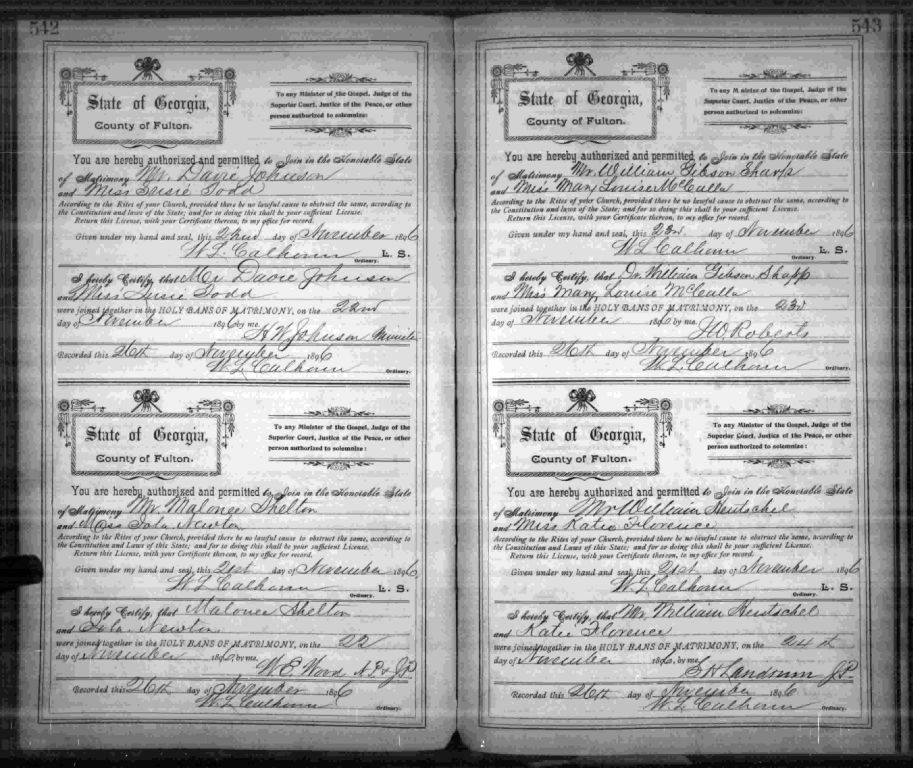 542
State of Georgia,
County of Fulton.
To any Minister of the Gospel, Judge of the
Superior Court, Justice of the Peace, or other
person authorized to solemnize:
You are hereby authorized and permitted to Join in the Honorable State
of Matrimony Mr. Davie Johnson
and Miss Susie Todd
According to the Rites of your Church, provided there be no lawful cause to obstruct the same, according to
the Constitution and laws of the State; and for so doing this shall be your sufficient License.
Return this License, with your Certificate thereon, to my office for record.
Given under my hand and seal, this 22nd day of November 1896
W. L. Calhoun L. S.
Ordinary.
I hereby Certify, that Mr Davie Johnson
and Miss Susie Todd
were joined together in the HOLY BANS OF MATRIMONY, on the 22nd
day of November 1896 by me,
H W Johnson Minister
Recorded this 26th day of November 1896
W. L. Calhoun Ordinary.
State of Georgia,
County of Fulton.
To any Minister of the Gospel, Judge of the
Superior Court, Justice of the Peace, or other
person authorized to solemnize:
You are hereby authorized and permitted to Join in the Honorable State
of Matrimony Mr. Malonee Shelton
and Miss Iola Newton
According to the Rites of your Church, provided there be no lawful cause to obstruct the same, according to
the Constitution and Laws of this State; and for so doing this shall be your sufficient License.
Return this License, with your Certificate thereon, to my office for record.
Given under my hand and seal, this 21st day of November 1896
W. L. Calhoun L. S.
Ordinary.
I hereby Certify, that Malonee Shelton
and Iola Newton
were joined together in the HOLY BANS OF MATRIMONY, on the 22
day of November 1896, by me,
W. E. Wood N. P. & J. P.
Recorded this 26th day of November 1896
W. L. Calhoun Ordinary.
543
State of Georgia,
County of Fulton.
To any Minister of the Gospel, Judge of the
Superior Court, Justice of the Peace, or other
person authorized to solemnize:
You are hereby authorized and permitted to Join in the Honorable State
of Matrimony Mr. William Gibson Sharp
and Miss Mary Louise McCulla
According to the Rites of your Church, provided there be no lawful cause to obstruct the same, according to
the Constitution and laws of the State; and for so doing this shall be your sufficient License.
Return this License, with your Certificate thereon, to my office for record.
Given under my hand and seal, this 23rd day of November 1896
W. L. Calhoun L. S.
Ordinary.
I hereby Certify, that Dr. William Gibson Sharp
and Miss Mary Louise McCulla
were joined together in the HOLY BANS OF MATRIMONY, on the 23d
day of November 1896 by me,
Roberts
Recorded this 26th day of November 1896
W. L. Calhoun Ordinary.
State of Georgia,
County of Fulton.
To any Minister of the Gospel, Judge of the
Superior Court, Justice of the Peace, or other
person authorized to solemnize:
You are hereby authorized and permitted to Join in the Honorable State
of Matrimony Mr William Hentschel
and Miss Katie Florence
According to the Rites of your Church, provided there be no lawful cause to obstruct the same, according to
the Constitution and Laws of this State; and for so doing this shall be your sufficient License.
Return this License, with your Certificate thereon, to my office for record.
Given under my hand and seal, this 21st day of November 1896
W. L. Calhoun L. S.
Ordinary.
I hereby Certify, that Mr. William Hentschel
and Katie Florence
were joined together in the HOLY BANS OF MATRIMONY, on the 24th
day of November 1896, by me,
S H Landrum J. P.
Recorded this 26th day of November 1896
W. L. Calhoun Ordinary.